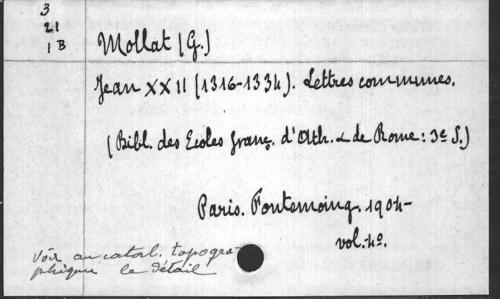 3
21
1B
Mollat (G.)
Jean XXII (1316-1334). Lettres communes.
(Bibl. des Ecoles franç. d'Ath. & de Rome: 3e S.)
Paris. Fontemoing. 1904-
vol. 4o.
Voir au catal. topogra-
phique le détail